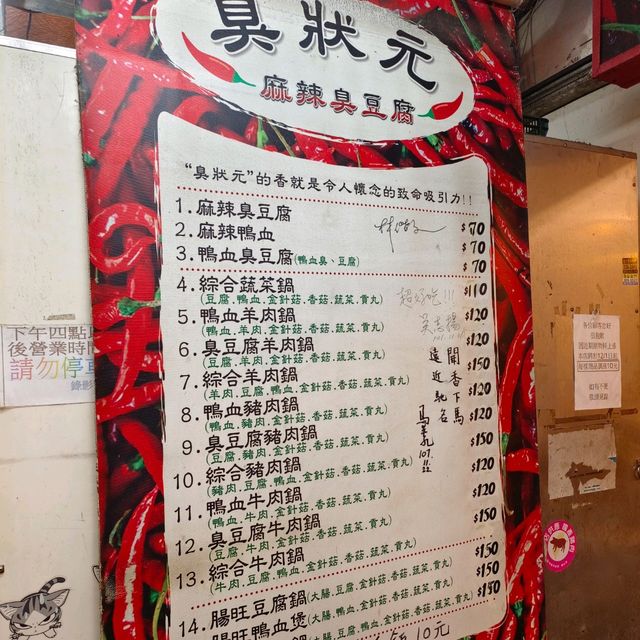 臭狀元
麻辣臭豆腐
“臭狀元”的香就是令人懷念的致命吸引力!!
1.麻辣臭豆腐 $70
2.麻辣鴨血 $70
3.鴨血臭豆腐(鴨血臭、豆腐) $70
4.綜合蔬菜鍋 $110
(豆腐.鴨血.金針菇.香菇.蔬菜.貢丸)
5.鴨血羊肉鍋 $120
(鴨血.羊肉.金針菇.香菇.蔬菜.貢丸)
6.臭豆腐羊肉鍋 $120
(豆腐.羊肉.金針菇.香菇.蔬菜.貢丸)
7.綜合羊肉鍋 $150
(羊肉.豆腐.鴨血.金針菇.香菇.蔬菜.貢丸)
8.鴨血豬肉鍋 $120
(鴨血.豬肉.金針菇.香菇.蔬菜.貢丸)
9.臭豆腐豬肉鍋 $120
(豆腐.豬肉.金針菇.香菇.蔬菜.貢丸)
10.綜合豬肉鍋 $150
(豬肉.豆腐.鴨血.金針菇.香菇.蔬菜.貢丸)
11.鴨血牛肉鍋 $120
(鴨血.牛肉.金針菇.香菇.蔬菜.貢丸)
12.臭豆腐牛肉鍋 $120
(豆腐.牛肉.金針菇.香菇.蔬菜.貢丸)
13.綜合牛肉鍋 $150
(牛肉.豆腐.鴨血.金針菇.香菇.蔬菜.貢丸)
14.腸旺豆腐鍋(大腸.豆腐.金針菇.香菇.蔬菜.貢丸) $150
腸旺鴨血煲(大腸.鴨血.金針菇.香菇.蔬菜.貢丸) $150
10元
超好吃!!!
吳志揚
聞香下馬
遠近馳名
107.11.22
下午四點
後營業時間
請勿停車